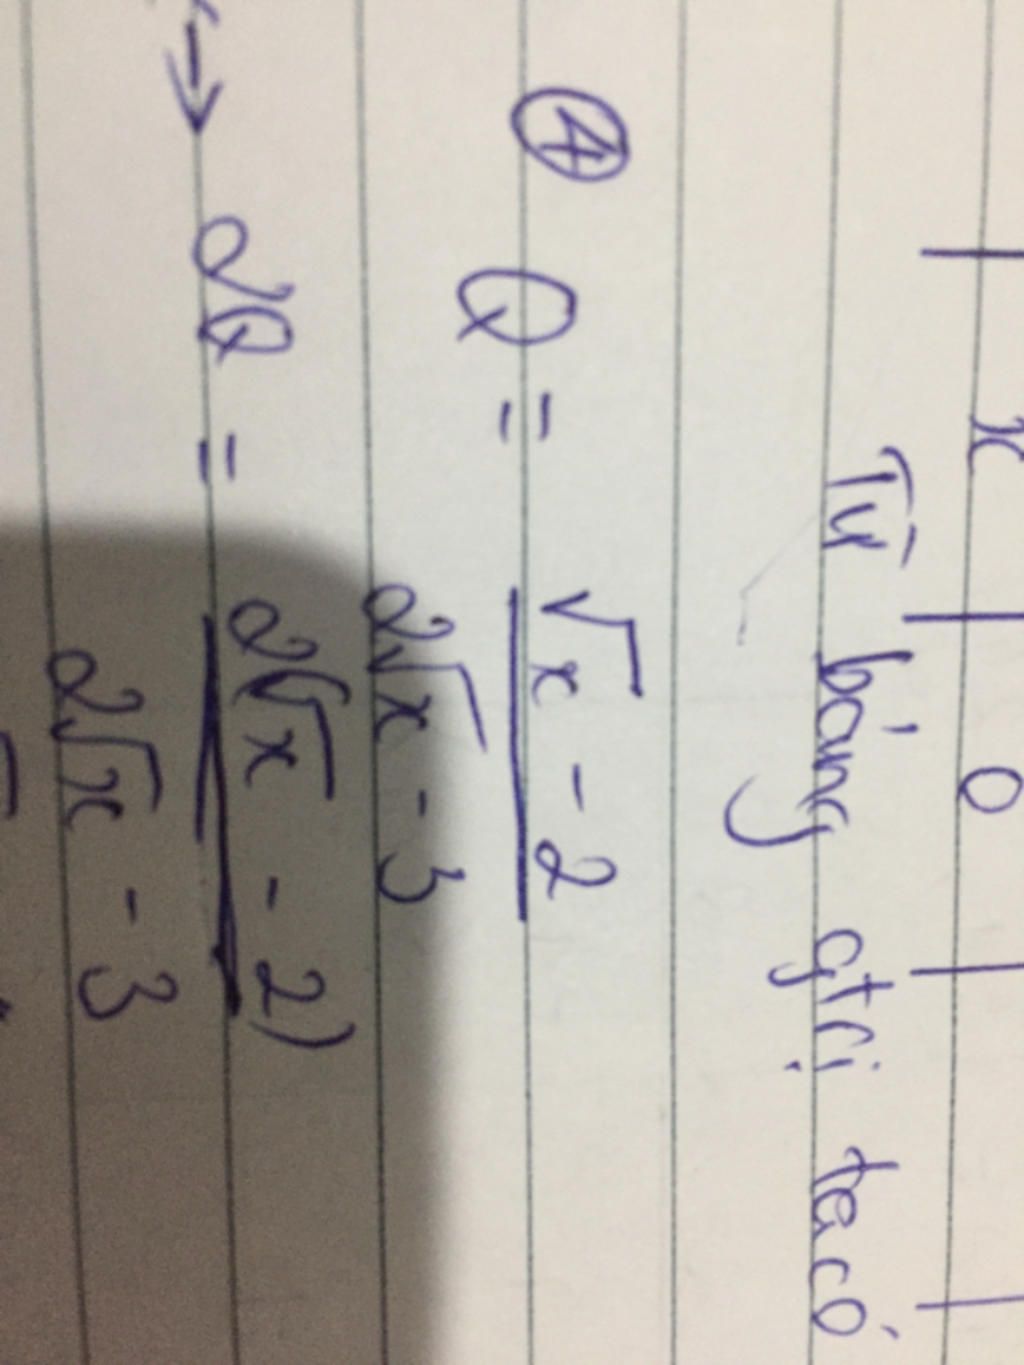 x 0
Từ bảng gtrị ta có
④ Q = √x - 2
2√x - 3
→ 2Q = 2(√x - 2)
2√x - 3